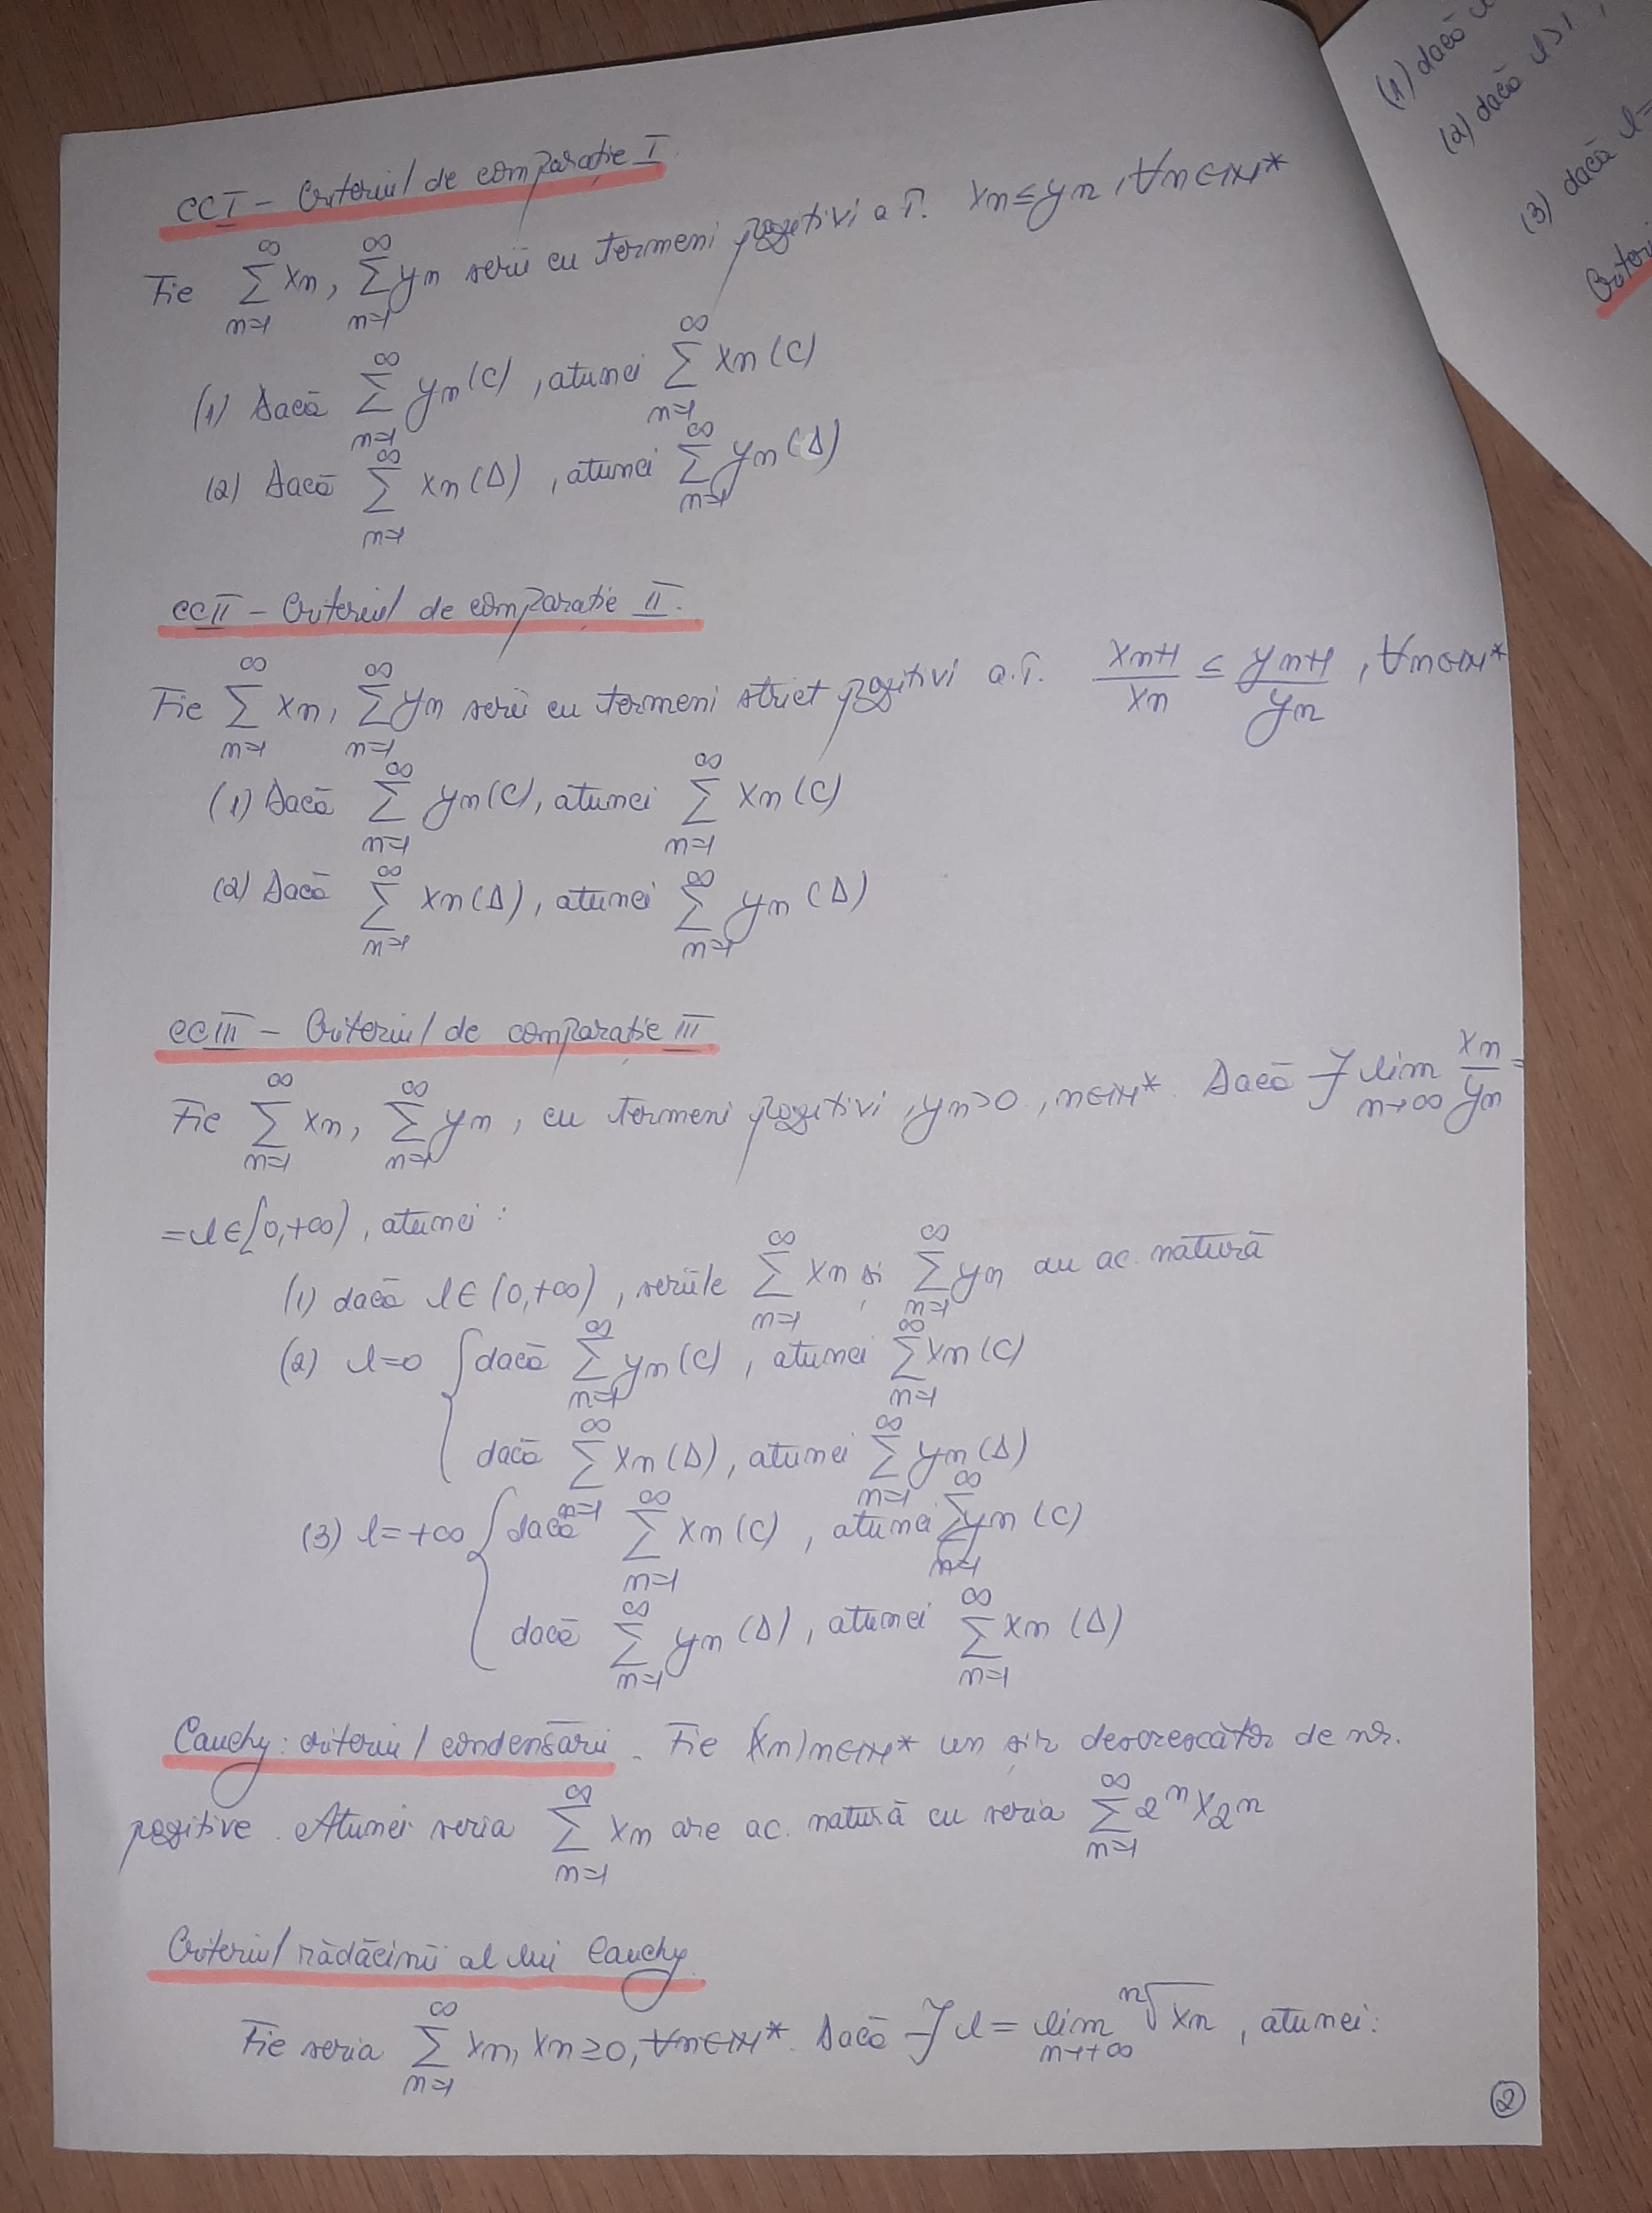 CCI - Criteriul de comparație I.
Fie ∑_{n=1}^{∞} xn, ∑_{n=1}^{∞} yn serii cu termeni pozitivi a.î. xn ≤ yn, ∀n∈ℕ*
(1) Dacă ∑_{n=1}^{∞} yn (C), atunci ∑_{n=1}^{∞} xn (C)
(2) Dacă ∑_{n=1}^{∞} xn (Δ), atunci ∑_{n=1}^{∞} yn (Δ)
CCII - Criteriul de comparație II.
Fie ∑_{n=1}^{∞} xn, ∑_{n=1}^{∞} yn serii cu termeni strict pozitivi a.î. \frac{xn+1}{xn} ≤ \frac{yn+1}{yn}, ∀n∈ℕ*
(1) Dacă ∑_{n=1}^{∞} yn (C), atunci ∑_{n=1}^{∞} xn (C)
(2) Dacă ∑_{n=1}^{∞} xn (Δ), atunci ∑_{n=1}^{∞} yn (Δ)
CCIII - Criteriul de comparație III
Fie ∑_{n=1}^{∞} xn, ∑_{n=1}^{∞} yn, cu termeni pozitivi, yn>0, n∈ℕ*. Dacă ∃ lim_{n→∞} \frac{xn}{yn} =
= l∈[0,+∞), atunci:
(1) dacă l∈(0,+∞), seriile ∑_{n=1}^{∞} xn și ∑_{n=1}^{∞} yn au ac. natură
(2) l=0 { dacă ∑_{n=1}^{∞} yn (C), atunci ∑_{n=1}^{∞} xn (C)
dacă ∑_{n=1}^{∞} xn (Δ), atunci ∑_{n=1}^{∞} yn (Δ)
(3) l=+∞ { dacă ∑_{n=1}^{∞} xn (C), atunci ∑_{n=1}^{∞} yn (C)
dacă ∑_{n=1}^{∞} yn (Δ), atunci ∑_{n=1}^{∞} xn (Δ)
Cauchy: criteriul condensării. Fie (xn)n∈ℕ* un șir descrescător de nr.
pozitive. Atunci seria ∑_{n=1}^{∞} xn are ac. natură cu seria ∑_{n=1}^{∞} 2^n x_{2^n}
Criteriul rădăcinii al lui Cauchy
Fie seria ∑_{n=1}^{∞} xn, xn≥0, ∀n∈ℕ*. Dacă ∃ l = lim_{n→+∞} \sqrt[n]{xn}, atunci:
2
(1) dacă
(2) dacă l>1,
(3) dacă l=